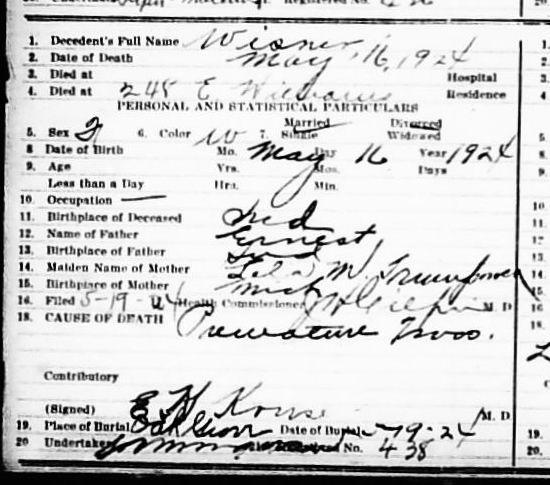 1. Decedent's Full Name Wisner
2. Date of Death May 16, 1924
3. Died at Hospital
4. Died at 248 E. Williams Residence
PERSONAL AND STATISTICAL PARTICULARS
Married Divorced
5. Sex F 6. Color W 7. Single Widowed
8 Date of Birth Mo. May Day 16 Year 1924
9. Age Yrs. Mos. Days
Less than a Day Hrs. Min.
10. Occupation —
11. Birthplace of Deceased Ind
12. Name of Father Ernest
13. Birthplace of Father Ind
14. Maiden Name of Mother M.
15. Birthplace of Mother Mich
16. Filed 5-19-24 Health Commissioner M. D
18. CAUSE OF DEATH Premature 7 mos.
Contributory
(Signed) E. H. Kruse M. D.
19. Place of Burial Date of Burial 19-24
20 Undertaker No. 438